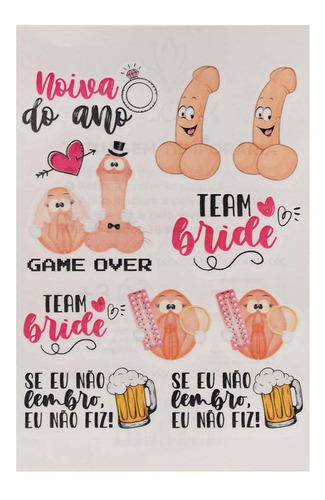 Noiva
do ano
GAME OVER
TEAM
bride
TEAM
bride
SE EU NÃO
lembro,
EU NÃO FIZ!
SE EU NÃO
lembro,
EU NÃO FIZ!